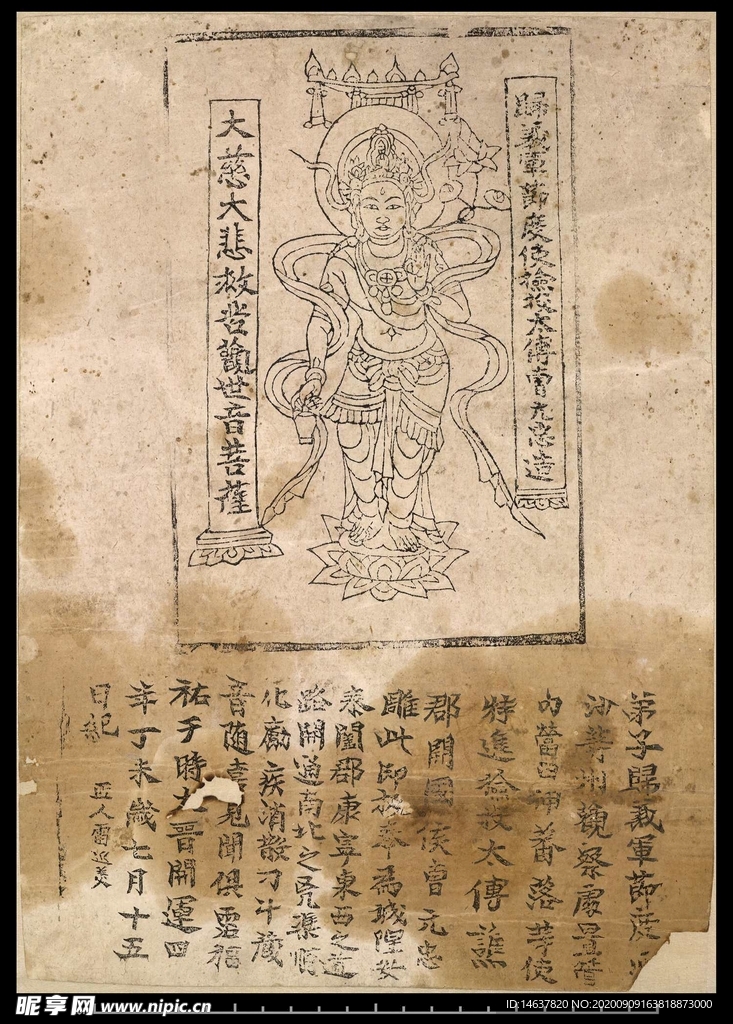 歸義軍節度使檢校太傅曹元忠造
大慈大悲救苦觀世音菩薩
弟子歸義軍節度
沙等州觀察處置管
內營田押蕃落等使
特進檢校太傅譙
郡開國侯曹元忠
雕此印板奉為城隍安
泰闔郡康寧東西之道
路開通南北之兇渠順
化勵疾消散刁斗藏
音隨喜見聞俱霑福
祐于時大晉開運四
年丁未歲七月十五
日紀 匠人雷延美
昵享网 www.nipic.cn
ID:14637820 NO:20200909163818873000